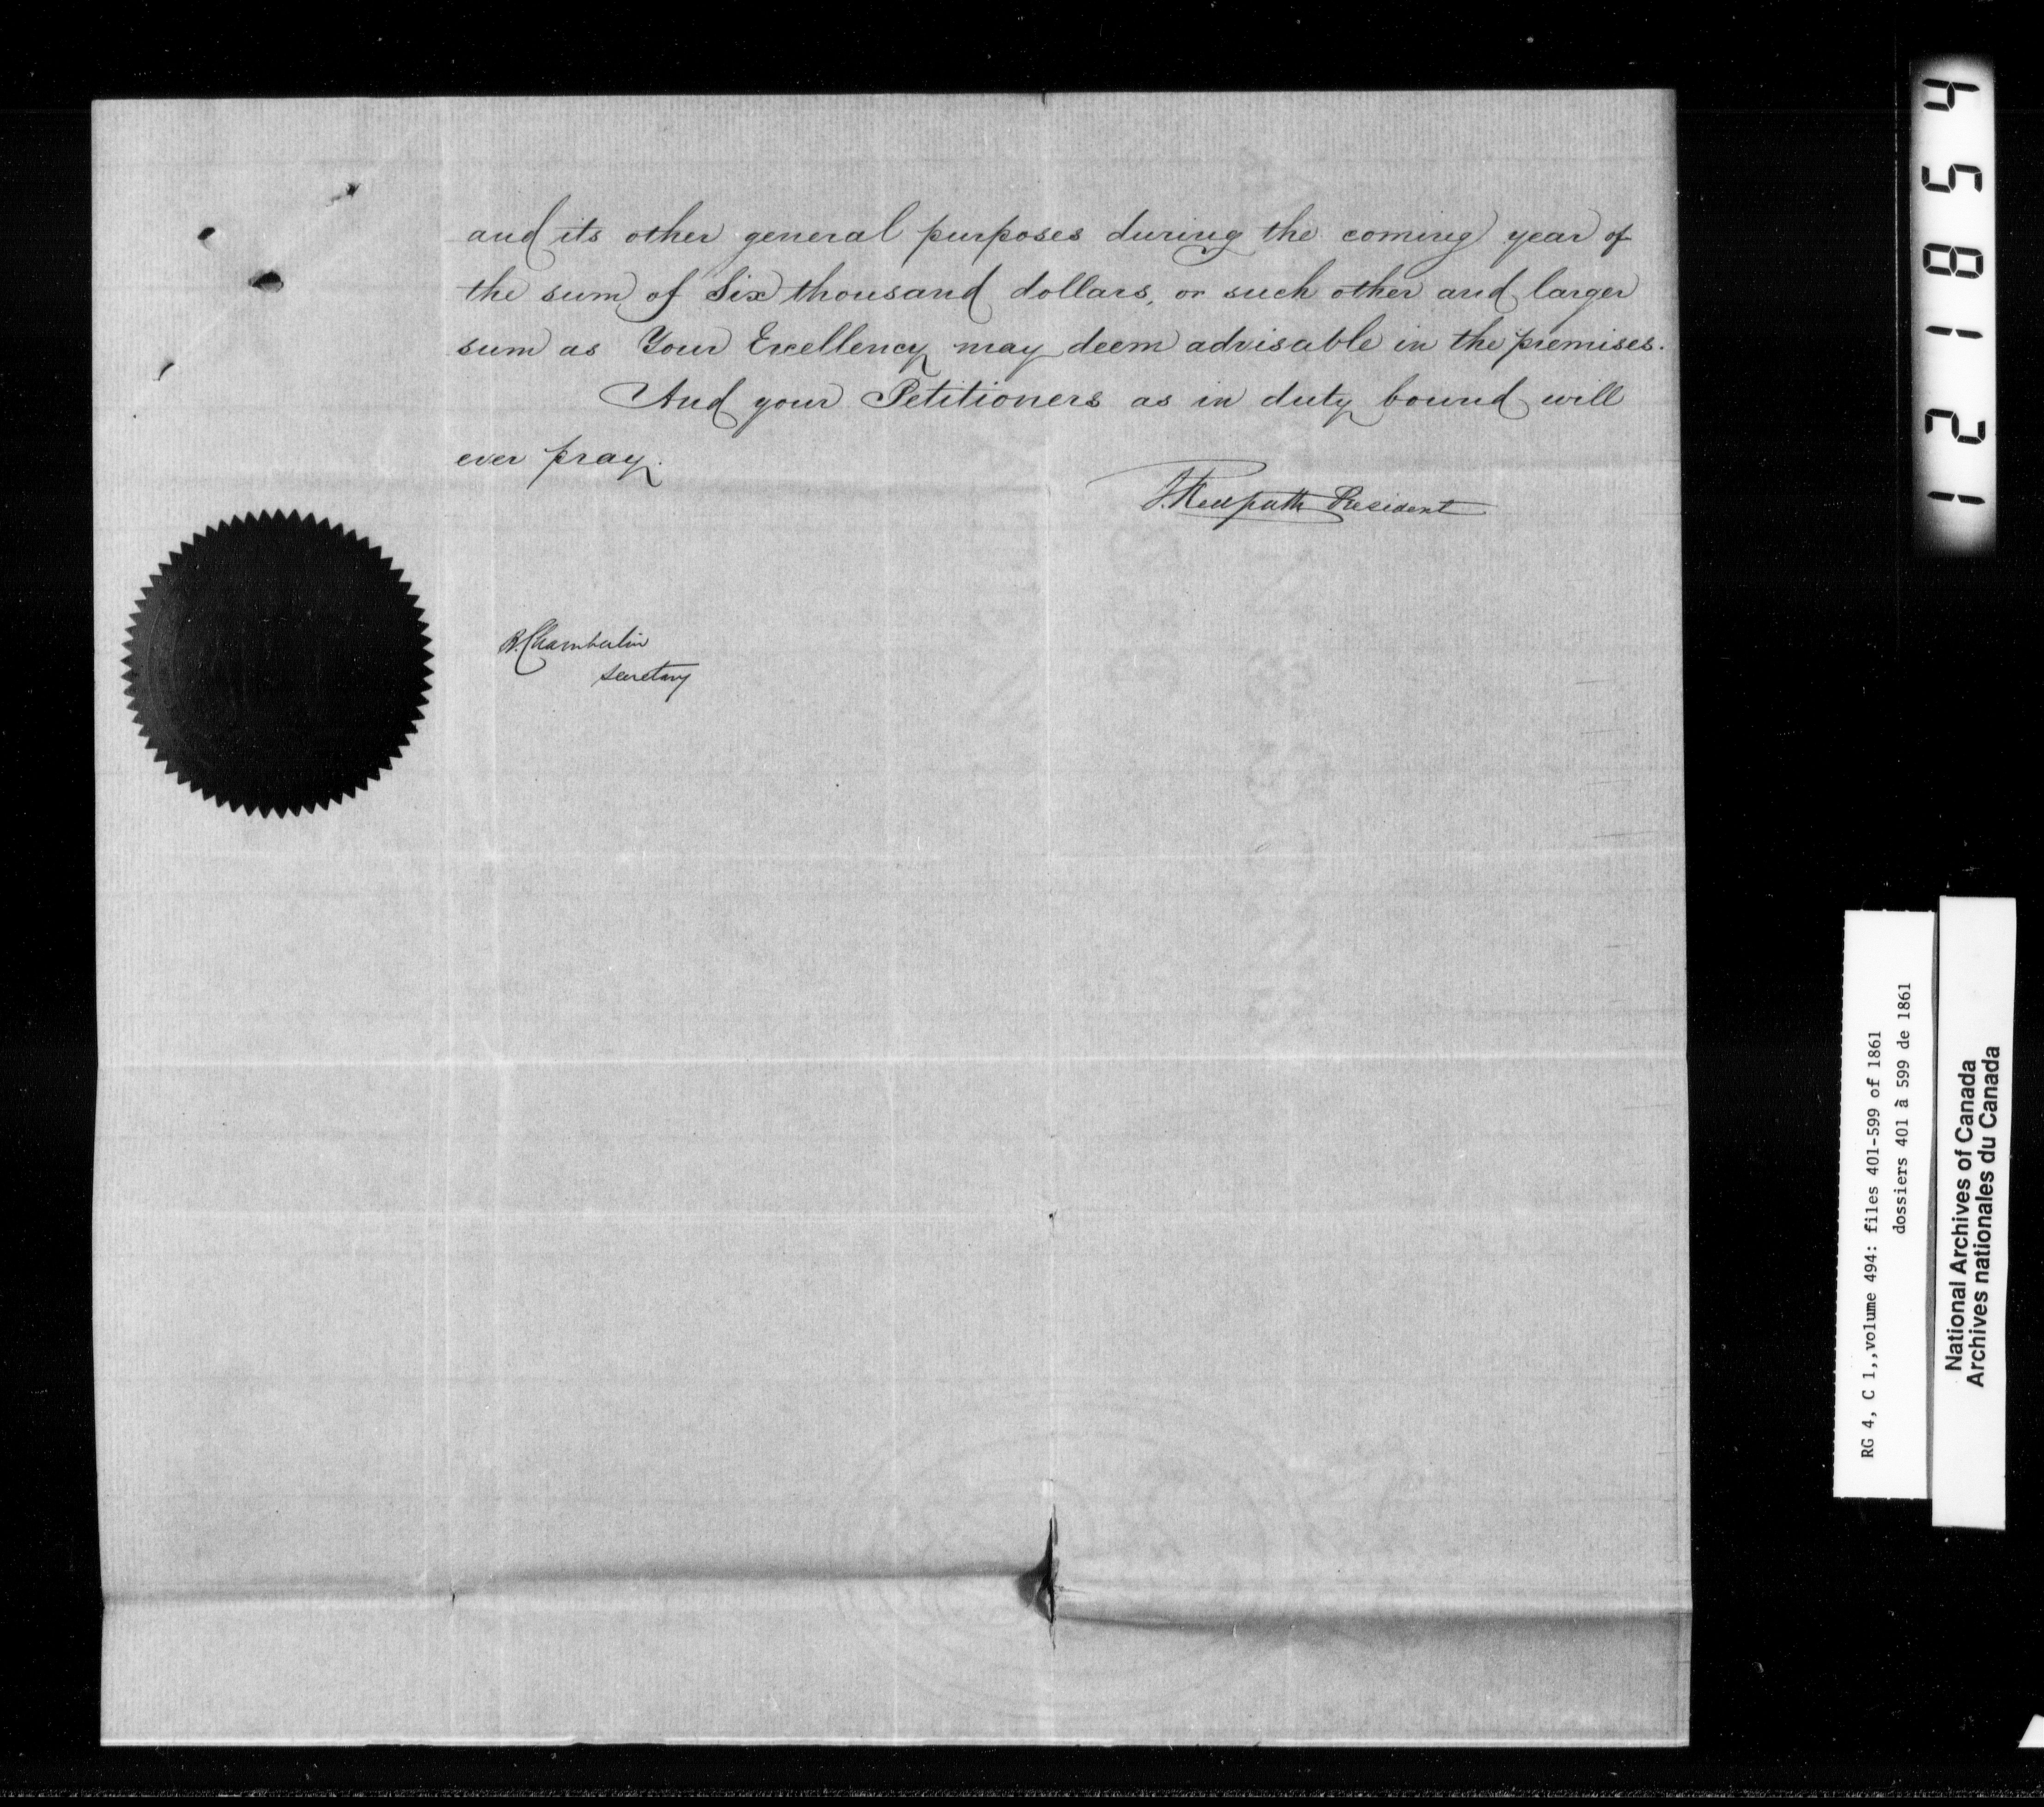 and its other general purposes during the coming year of
the sum of Six thousand dollars, or such other and larger
sum as Your Excellency may deem advisable in the premises.
And your Petitioners as in duty bound will
ever pray.
J. Redpath President
B. Chamberlin
Secretary
121854
RG 4, C 1,,volume 494: files 401-599 of 1861
dossiers 401 à 599 de 1861
National Archives of Canada
Archives nationales du Canada